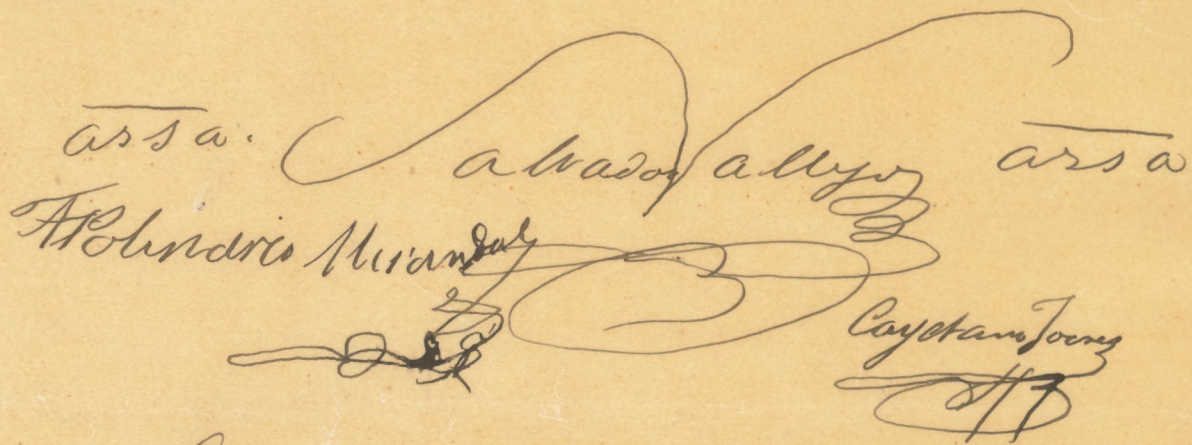 assa. Salvador Vallejo assa
Apolinario Miranda
Cayetano Juarez